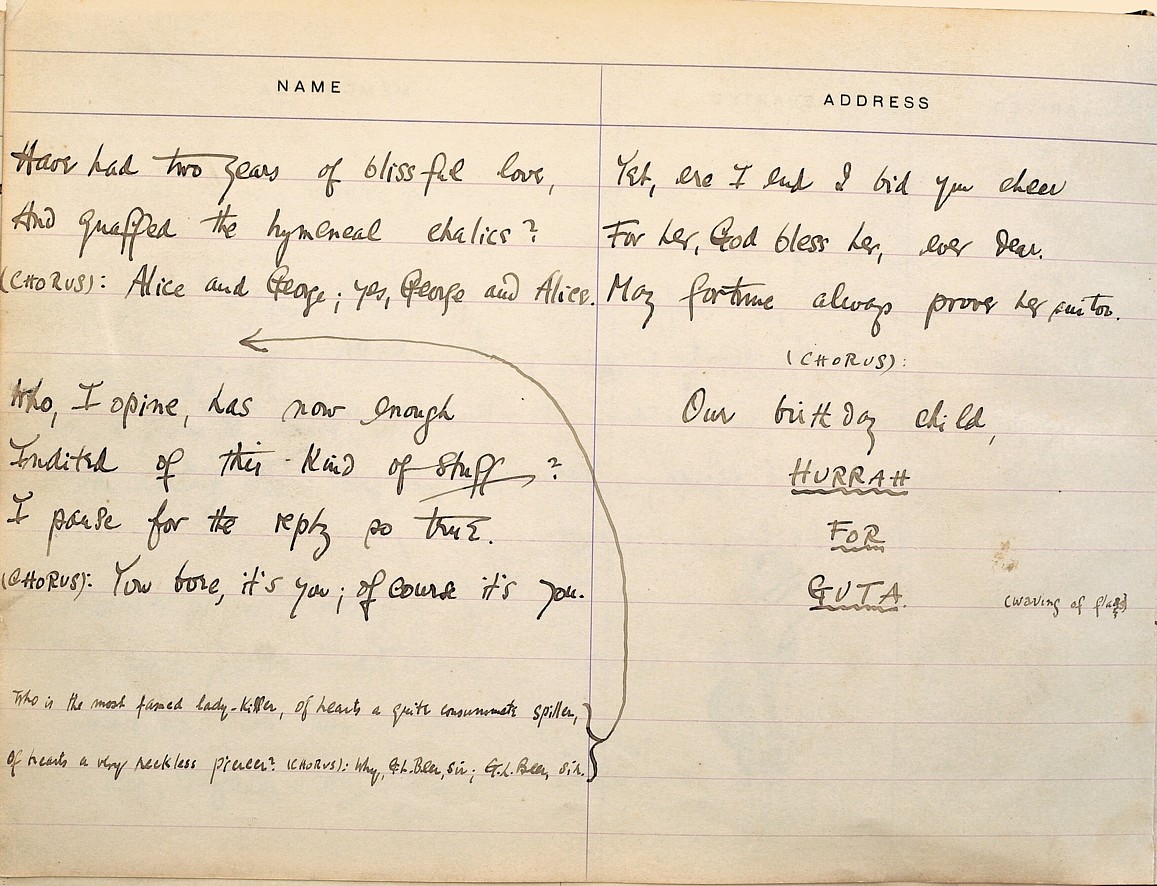 NAME
Have had two years of blissful love,
And quaffed the hymeneal chalice?
(CHORUS): Alice and George; yes, George and Alice.
Who, I opine, has now enough
Indited of this kind of stuff?
I pause for the reply so true.
(CHORUS): You bore, it's you; of course it's you.
Who is the most famed lady-killer, of hearts a quite consummate spiller,
Of hearts a very reckless piercer? (CHORUS): Why, G.L. Beer, sir; G.L. Beer, sir.
ADDRESS
Yet, ere I end I bid you cheer
For her, God bless her, ever dear.
May fortune always prove her suitor.
(CHORUS):
Our birthday child,
HURRAH
FOR
GUTA.
(waving of flags)